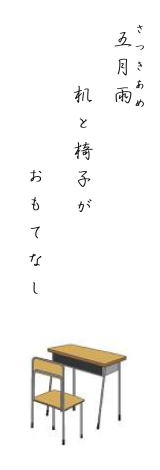 五月雨
さつきあめ
机と椅子が
おもてなし